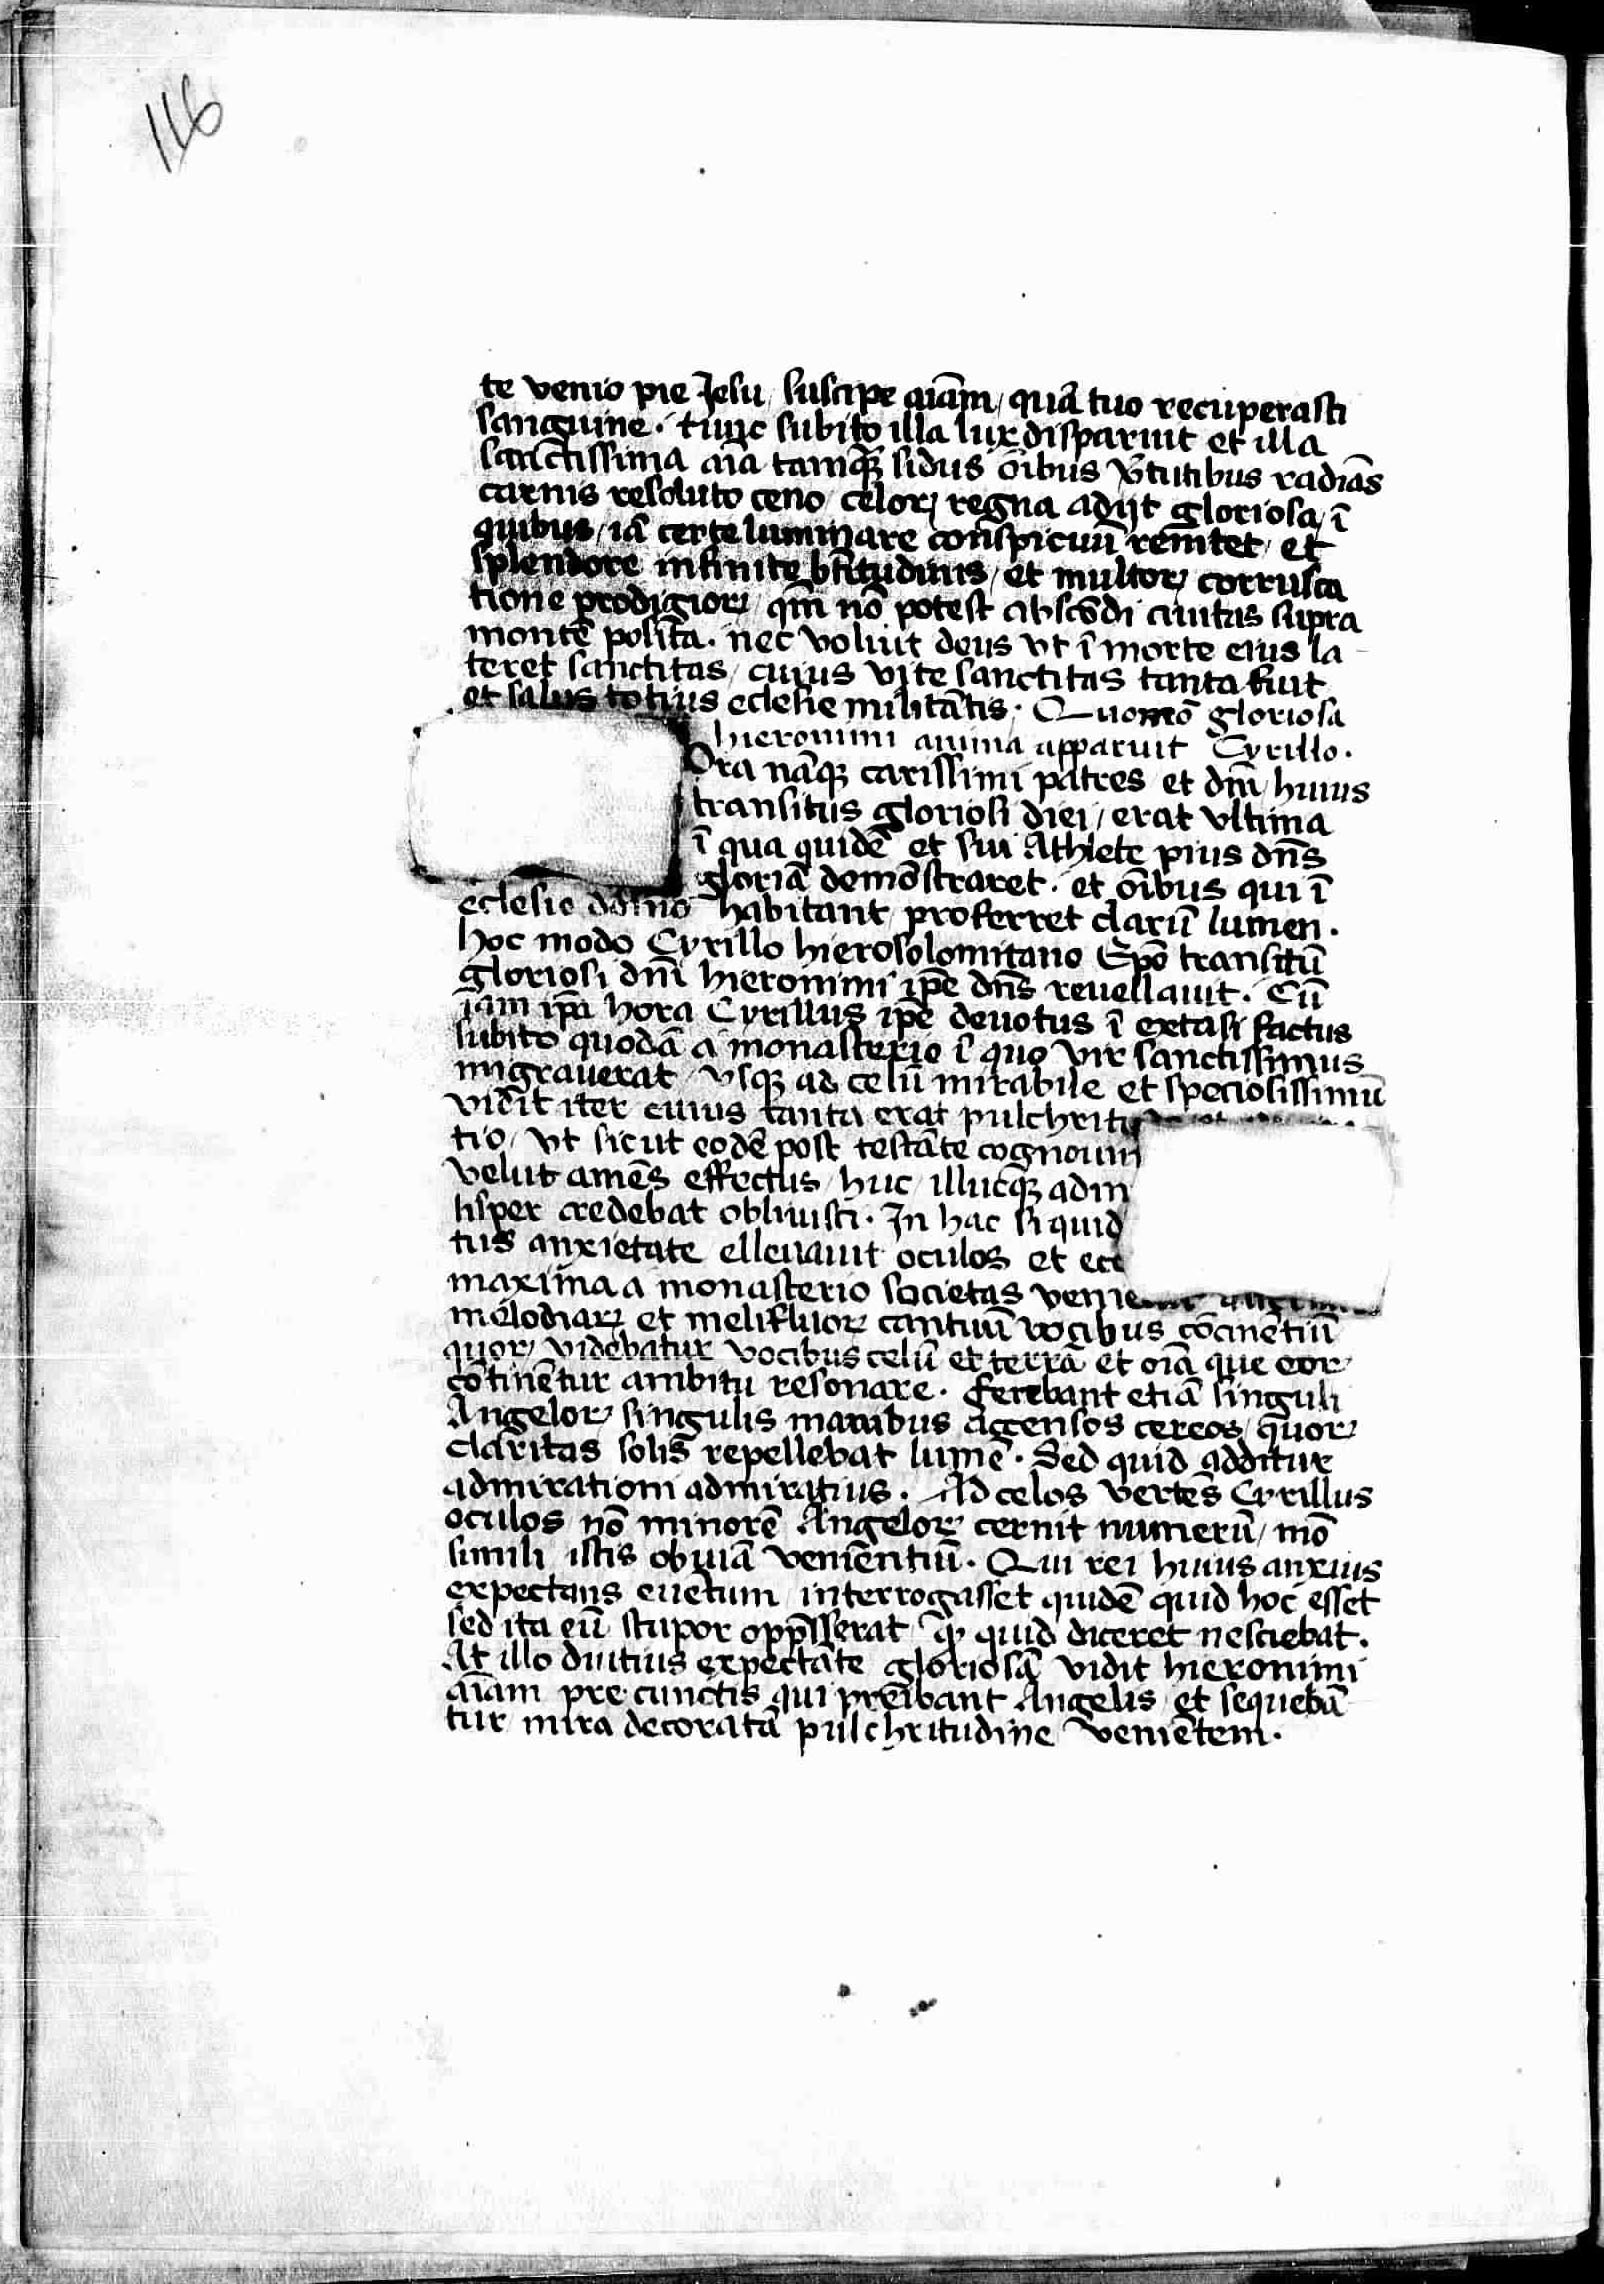 116
te venio pie Jesu / suscipe aiām / quā tuo recuperasti
sanguine · tunc subito illa lux disparuit et illa
sanctissima aīa tamqꝫ sidus oībus v̄tutibus radiās
carnis resoluto ceno / celoꝝ regna adijt gloriosa / ī
quibus / iā certe luminare conspicuū remitet / et
splendore infinite btītudinis / et multoꝝ corrusca
tione prodigioꝝ / qm̄ nō potest abscōdi ciuitas supra
montē posita · nec voluit deus vt ī morte eius la-
teret sanctitas / cuius vite sanctitas tanta fuit
et salus totius eclesie militātis · Quomō gloriosa
hieronimi anima apparuit Cyrillo ·
Ora nāqꝫ carissimi patres et dm̄ / huius
transitus gloriosi diei / erat vltima
ī qua quidē et sui Athlete pius dn̄s
gloriā demōstraret · et oībus qui ī
eclesie domo habitant / proferret clarū lumen ·
hoc modo Cyrillo hierosolomitano Ep̄o transitū
gloriosi dn̄i hieronimi ip̄e dn̄s reuellauit · Cū
iam ip̄a hora Cyrillus ip̄e deuotus ī extasi factus
subito quodā a monasterio ī quo vir sanctissimus
migrauerat / vsqꝫ ad celū mirabile et speciosissimū
vidit iter cuius tanta erat pulchritu
tio / vt sicut eodē post testāte cognoui
velut amēs effectus / huc / illucqꝫ adm
lisper credebat obliuisci · In hac siquid
tus anxietate elleuauit oculos et ecc
maxima a monasterio societas venie
melodiaꝝ et melifluoꝝ cantuū vocibus cōcinētiū
quoꝝ videbatur vocibus celū et terrā et oīā que eoꝝ
cōtinētur ambitu resonare · ferebant etiā singuli
Angeloꝝ singulis manibus accensos cereos / quoꝝ
claritas solis repellebat lumē · Sed quid additur
admirationi admiratius · Ad celos vertēs Cyrillus
oculos nō minorē Angeloꝝ cernit numerū / mō
simili istis obuiā venientiū · Qui rei huius anxius
expectans euētum / interrogasset quidē quid hoc esset
sed ita eū stupor opp̄sserat / qꝫ quid diceret nesciebat ·
At illo diutius expectāte gloriosā vidit hieronimi
aīam pre cunctis qui preibant Angelis et sequebā
tur mira decoratā pulchritudine veniētem ·